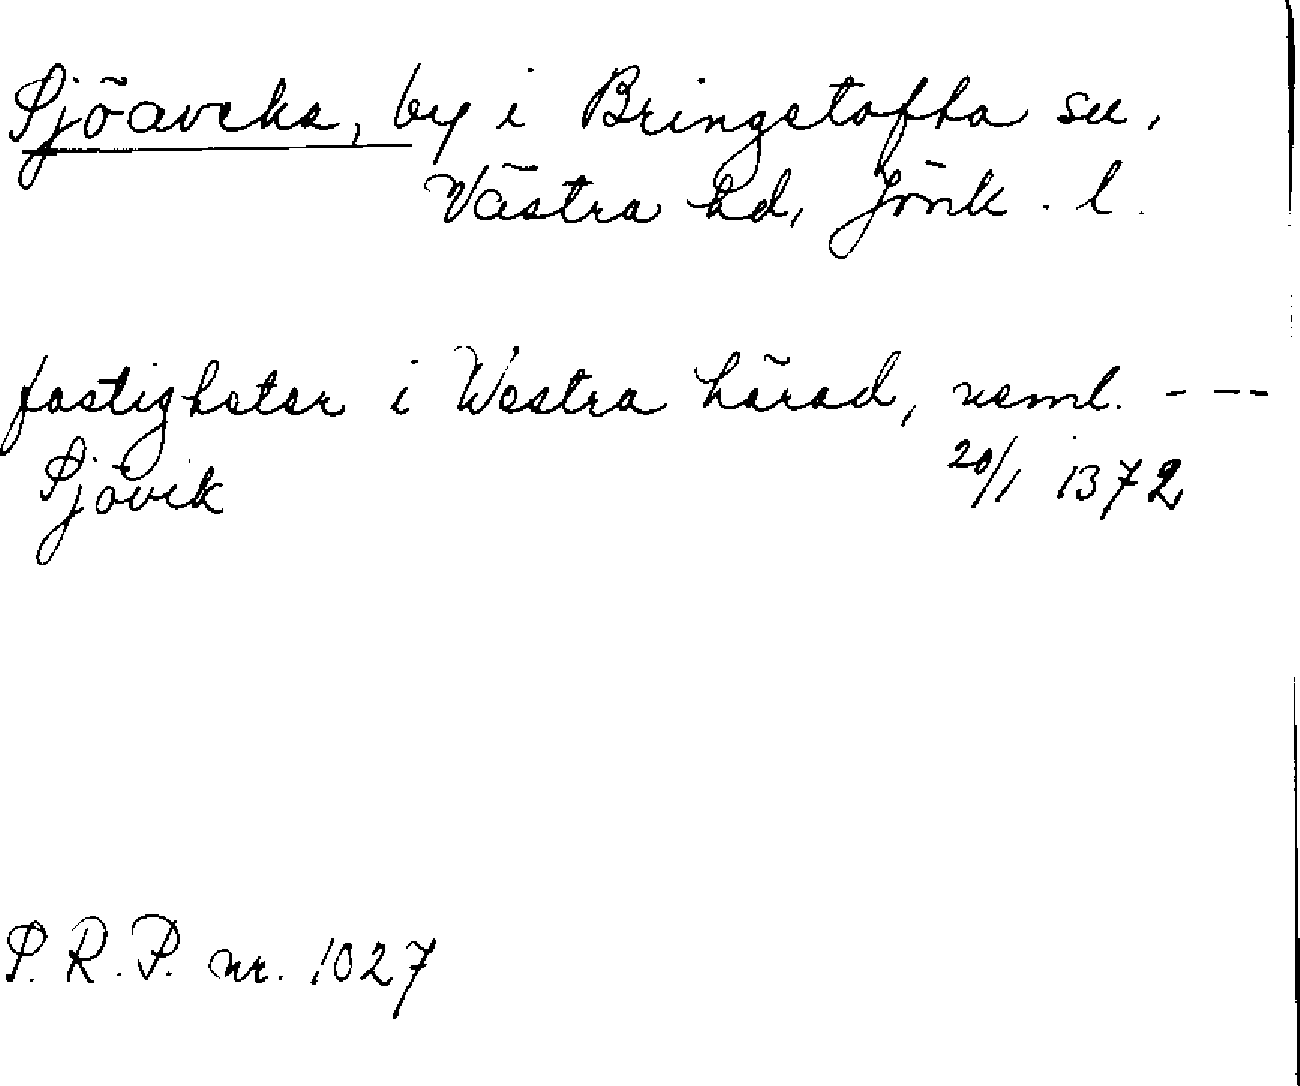 Sjöaveka, by i Bringetofta sn,
Västra hd, Jönk. l.
fastigheter i Westra härad, neml. ---
Sjövik 20/1 1372
S. R. P. nr. 1027